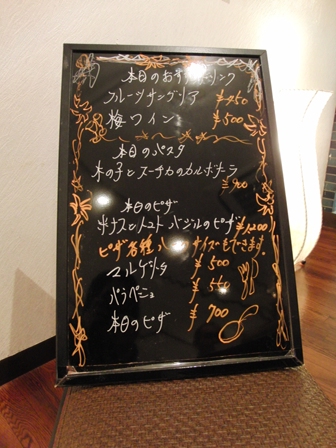 本日のおすすめドリンク
フルーツサングリア ¥450
梅ワイン ¥500
本日のパスタ
木の子とスーチカのカルボナーラ
¥900
本日のピザ
米ナスとトマト バジルのピザ ¥1,200
ピザ各種 サイズもできます
マルゲリータ ¥500
¥550
本日のピザ ¥700